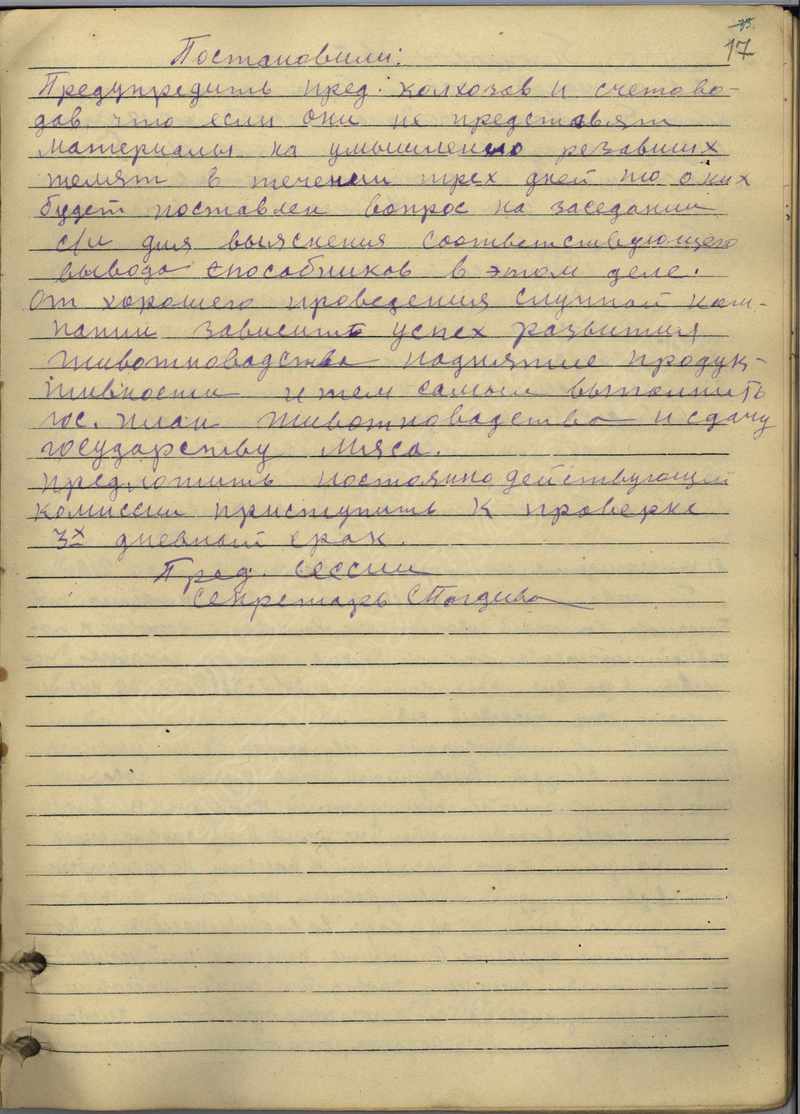 17
Постановили:
Предупредить пред. колхозов и счетово-
дов что если они не представят
материалы на умышленно резавших
телят в течении трех дней то о них
будет поставлен вопрос на заседании
с/и для выяснения соответствующего
вывода способников в этом деле.
От хорошего проведения случной кам-
пании зависит успех развития
животноводства поднятие продук-
тивности и тем самым выполнить
гос. план животноводства и сдачу
государству мяса.
Предложить постоянно действующей
комиссии приступить к проверке
3х дневный срок.
Пред. сессии
Секретарь